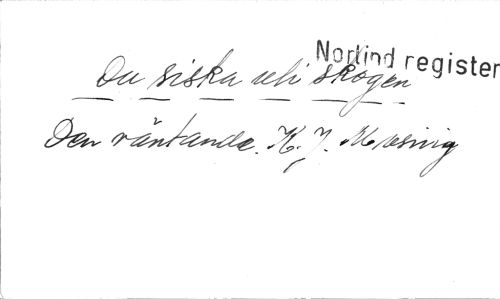 Norlind register
Du siska uti skogen
Den väntande. K. J.